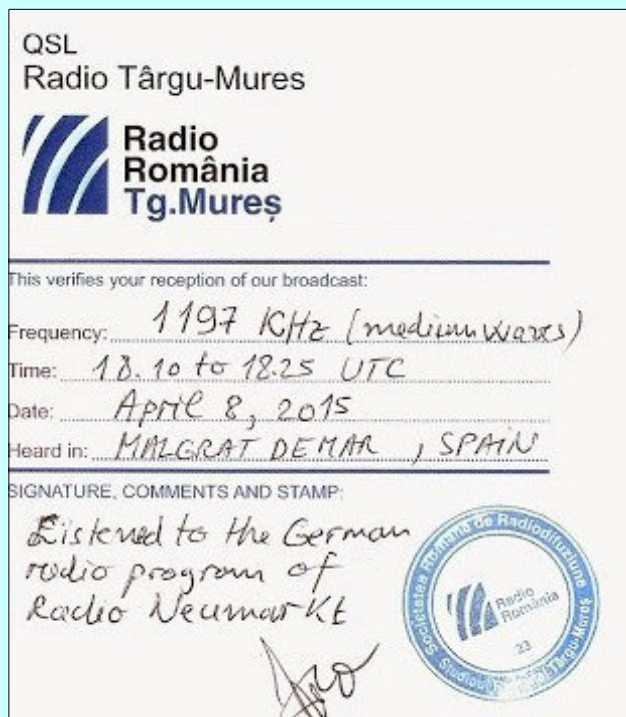 QSL
Radio Târgu-Mures
Radio
România
Tg.Mureș
This verifies your reception of our broadcast:
Frequency: 1197 KHz (medium waves)
Time: 18.10 to 18.25 UTC
Date: April 8, 2015
Heard in: MALGRAT DE MAR, SPAIN
SIGNATURE, COMMENTS AND STAMP:
Listened to the German
radio program of
Radio Neumarkt
Societatea Română de Radiodifuziune
Radio
România
23
Târgu-Mureș